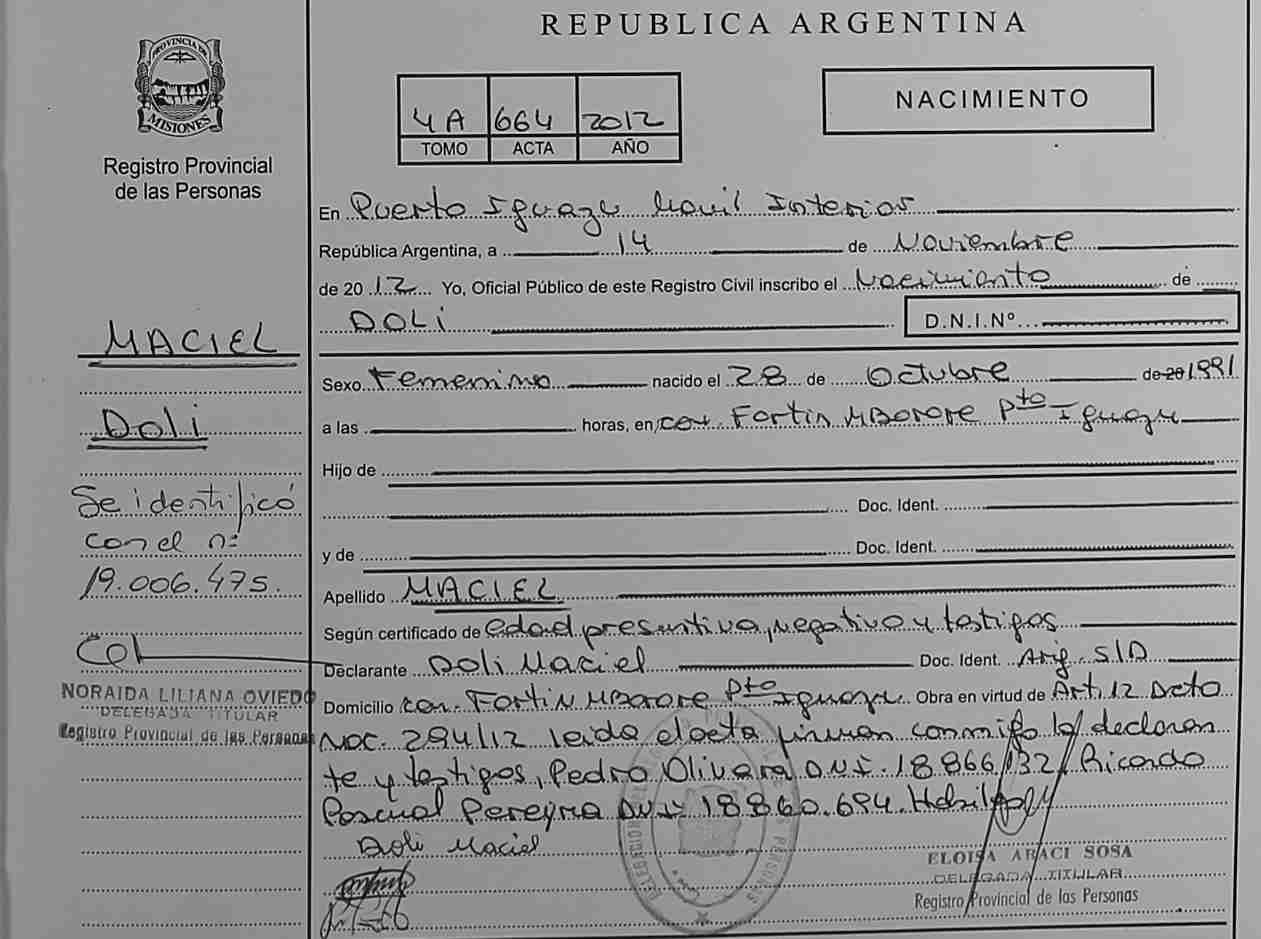 REPUBLICA ARGENTINA
PROVINCIA DE
MISIONES
Registro Provincial
de las Personas
4A 664 2012
TOMO ACTA AÑO
NACIMIENTO
En Puerto Iguazu Movil Interior
República Argentina, a 14 de Noviembre
de 2012 Yo, Oficial Público de este Registro Civil inscribo el Nacimiento de
DOLI D.N.I.Nº
Sexo Femenino nacido el 28 de Octubre de 20 1991
a las horas, en, com. Fortin MBorore Pto Iguazu
Hijo de
Doc. Ident.
y de Doc. Ident.
Apellido MACIEL
Según certificado de edad presuntiva, negativo y testigos
Declarante Doli Maciel Doc. Ident. Arg. S/D
Domicilio com. Fortin MBorore Pto Iguazu Obra en virtud de Art. 12 Dcto
Nac. 294/12 leida el acta firman conmigo la declaran
te y testigos, Pedro Olivera D.N.I. 18866132/ Ricardo
Pascual Pereyra D.N.I. 18860.694.
Doli Maciel
ELOISA ARACI SOSA
DELEGADA TITULAR
Registro Provincial de las Personas
MACIEL
Doli
Se identificó
con el nº
19.006.475.
NORAIDA LILIANA OVIEDO
DELEGADA TITULAR
Registro Provincial de las Personas